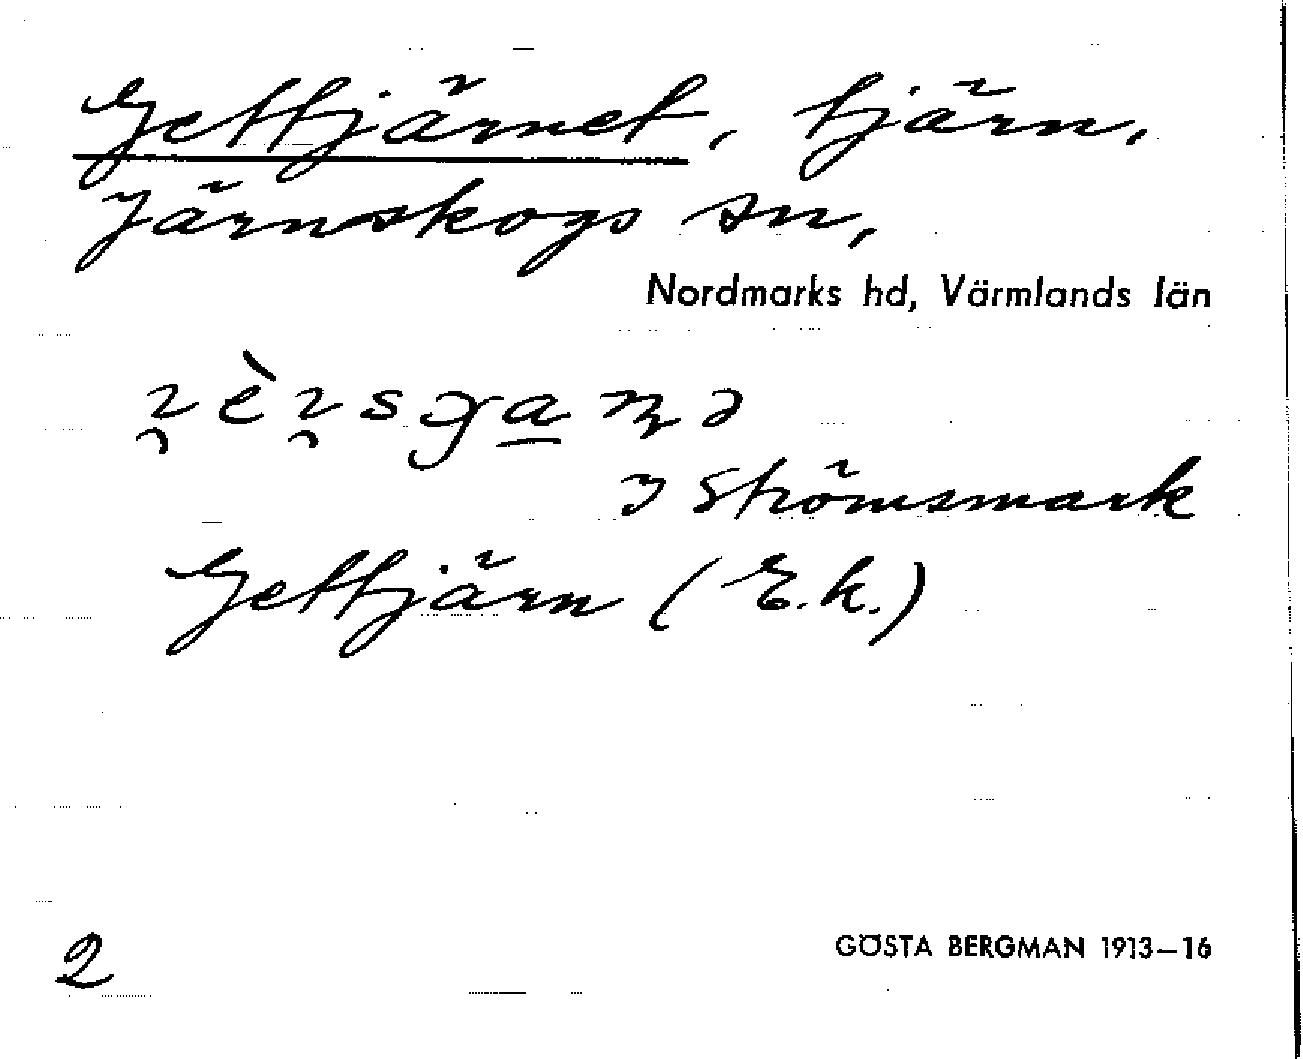 Gettjärnet, tjärn,
Järnskogs sn,
Nordmarks hd, Värmlands län
i Strömsmark
Gettjärn (E.k.)
2
GÖSTA BERGMAN 1913–16